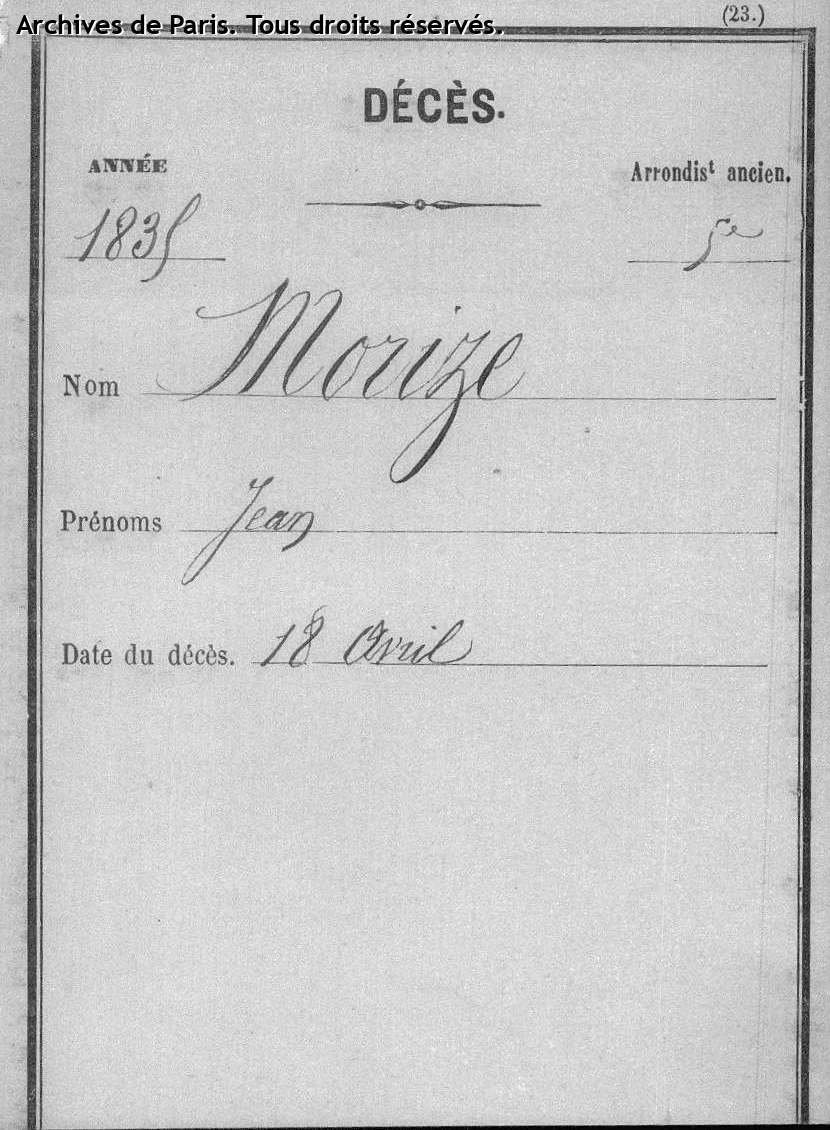 (23.)
Archives de Paris. Tous droits réservés.
DÉCÈS.
ANNÉE
Arrondisᵗ ancien.
1835
5e
Nom Morize
Prénoms Jean
Date du décès. 18 Avril